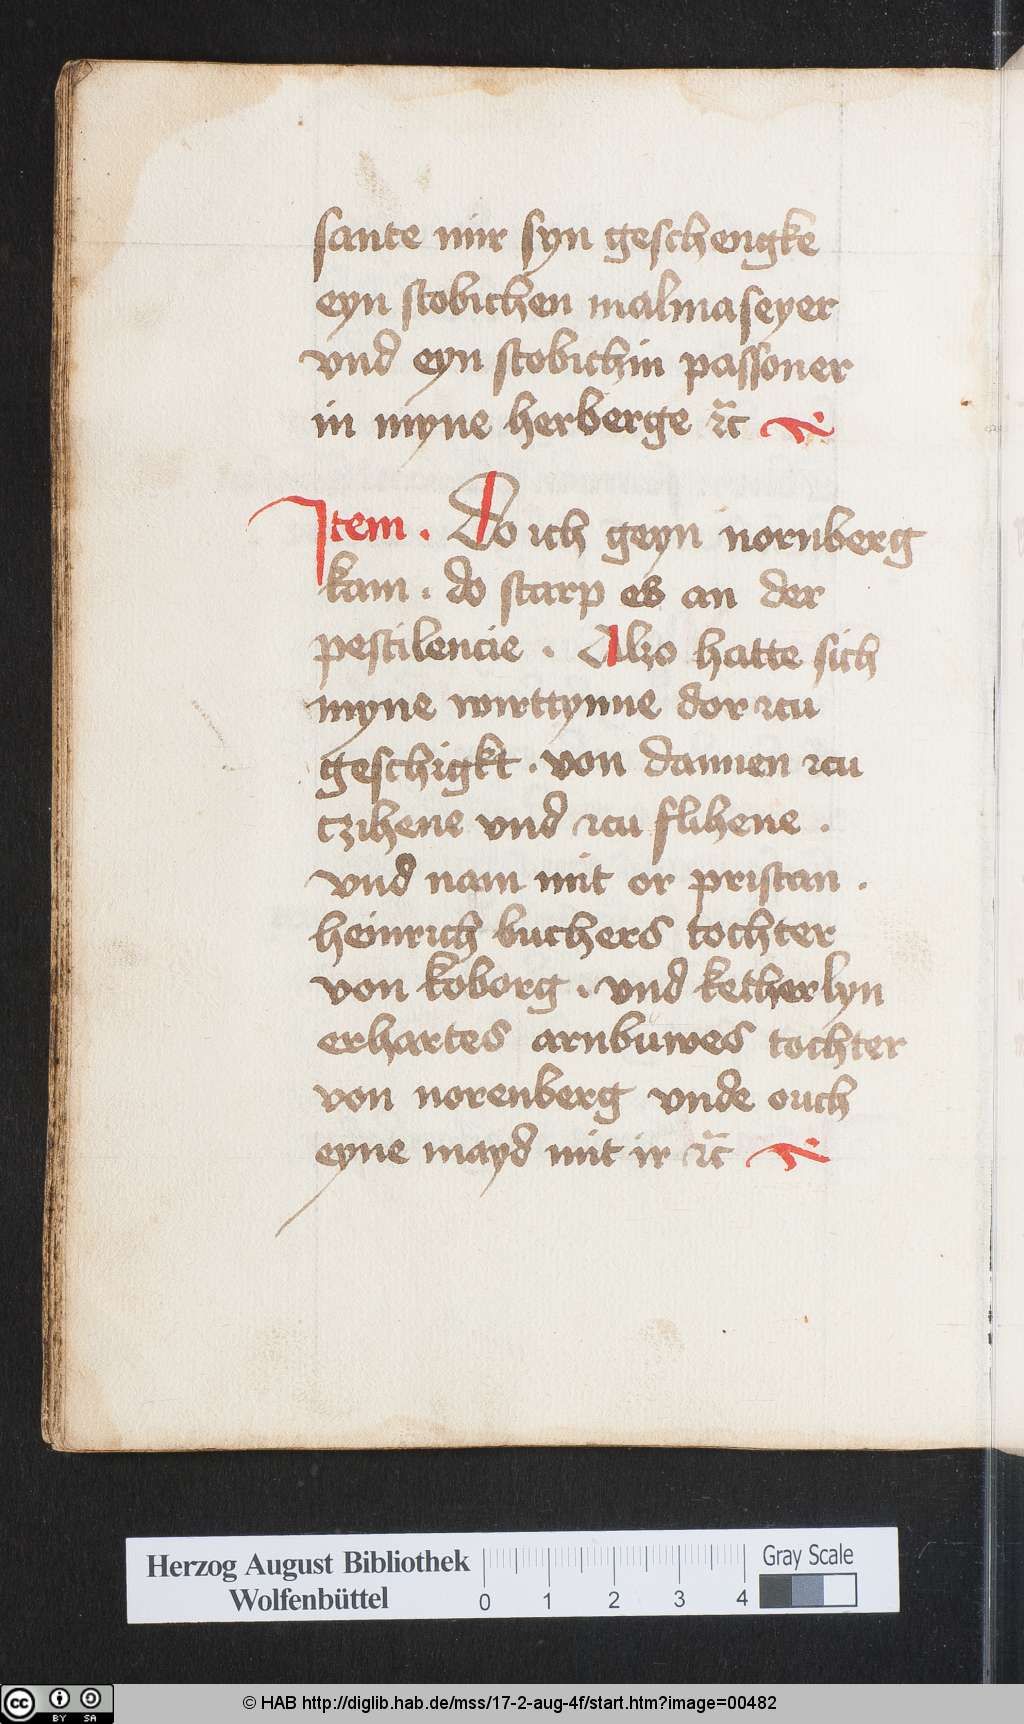 sante mir syn geschengke
eyn stobichen malmaseyer
vnd eyn stobichin passoner
in myne herberge ꝛc̃
Item . Do ich geyn nornberg
kam . do starp es an der
pestilencie . Alzo hatte sich
myne wirttynne dor zcu
geschigkt . von dannen zcu
czihene vnd zcu flihene .
vnd nam mit or pristan .
heinrich buchers tochter
von koborg . vnd ketherlyn
erhartes arnbuwes tochter
von norenberg vnde ouch
eyne mayd mit ir ꝛc̃
Herzog August Bibliothek
Wolfenbüttel
0 1 2 3 4
Gray Scale
cc BY SA
© HAB http://diglib.hab.de/mss/17-2-aug-4f/start.htm?image=00482